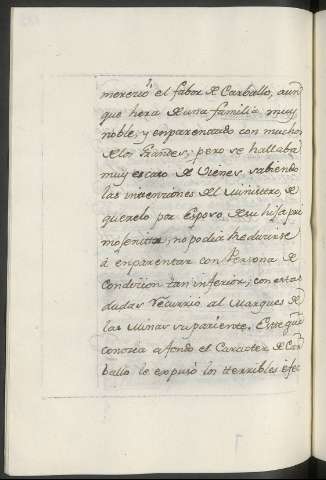 merecio el fabor de Carballo, aun
que hera de una familia muy
noble, y enparentado con muchos
de los Grandes; pero se hallaba
muy escaso de Vienes, sabiendo
las intenciones del Ministro, de
querelo por Esposo de su hija pri
mogenita, no podia reducirse
á enparentar con Persona de
Condicion tan inferior; con estas
dudas recurrió al Marques de
las Minas su pariente. Este que
conocia afondo el Caracter de Car
ballo le expuso los terribles efec